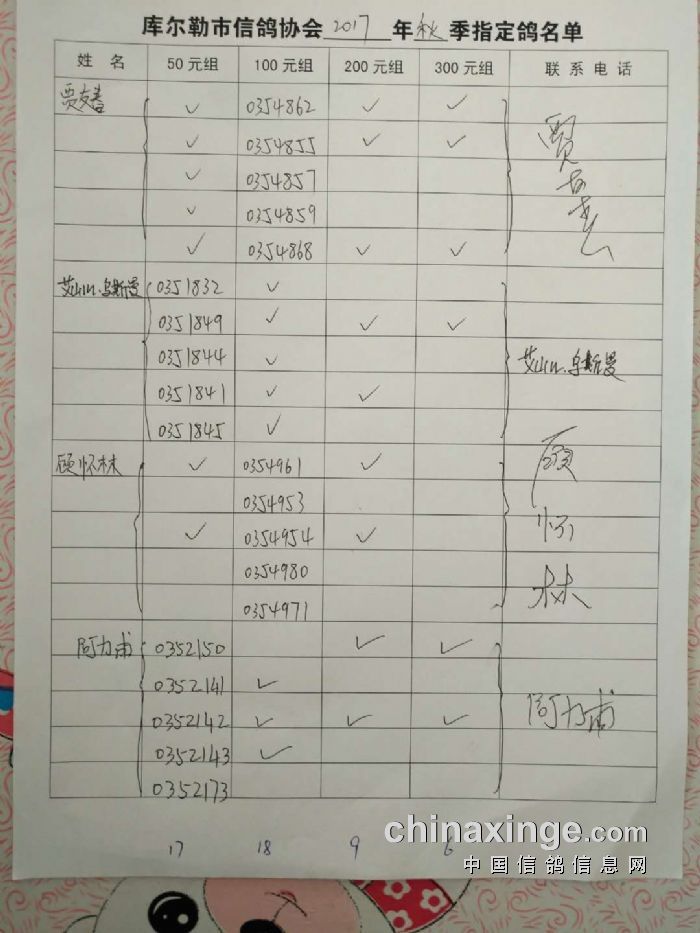 库尔勒市信鸽协会 2017 年 秋 季指定鸽名单
姓 名 50元组 100元组 200元组 300元组 联系电话
贾友善 ✓ 0354862 ✓ ✓
✓ 0354855 ✓ ✓
✓ 0354857
✓ 0354859
✓ 0354868 ✓ ✓
贾友善
艾山江.乌斯曼 0351832 ✓
0351849 ✓ ✓ ✓
0351844 ✓
艾山江.乌斯曼
0351841 ✓ ✓
0351845 ✓
顾怀林 ✓ 0354961 ✓
0354953
✓ 0354954 ✓
0354980
0354971
顾怀林
阿力甫 0352150 ✓ ✓
0352141 ✓
0352142 ✓ ✓ ✓
阿力甫
0352143 ✓
0352173
17 18 9 6
chinaxinge.com
中国信鸽信息网